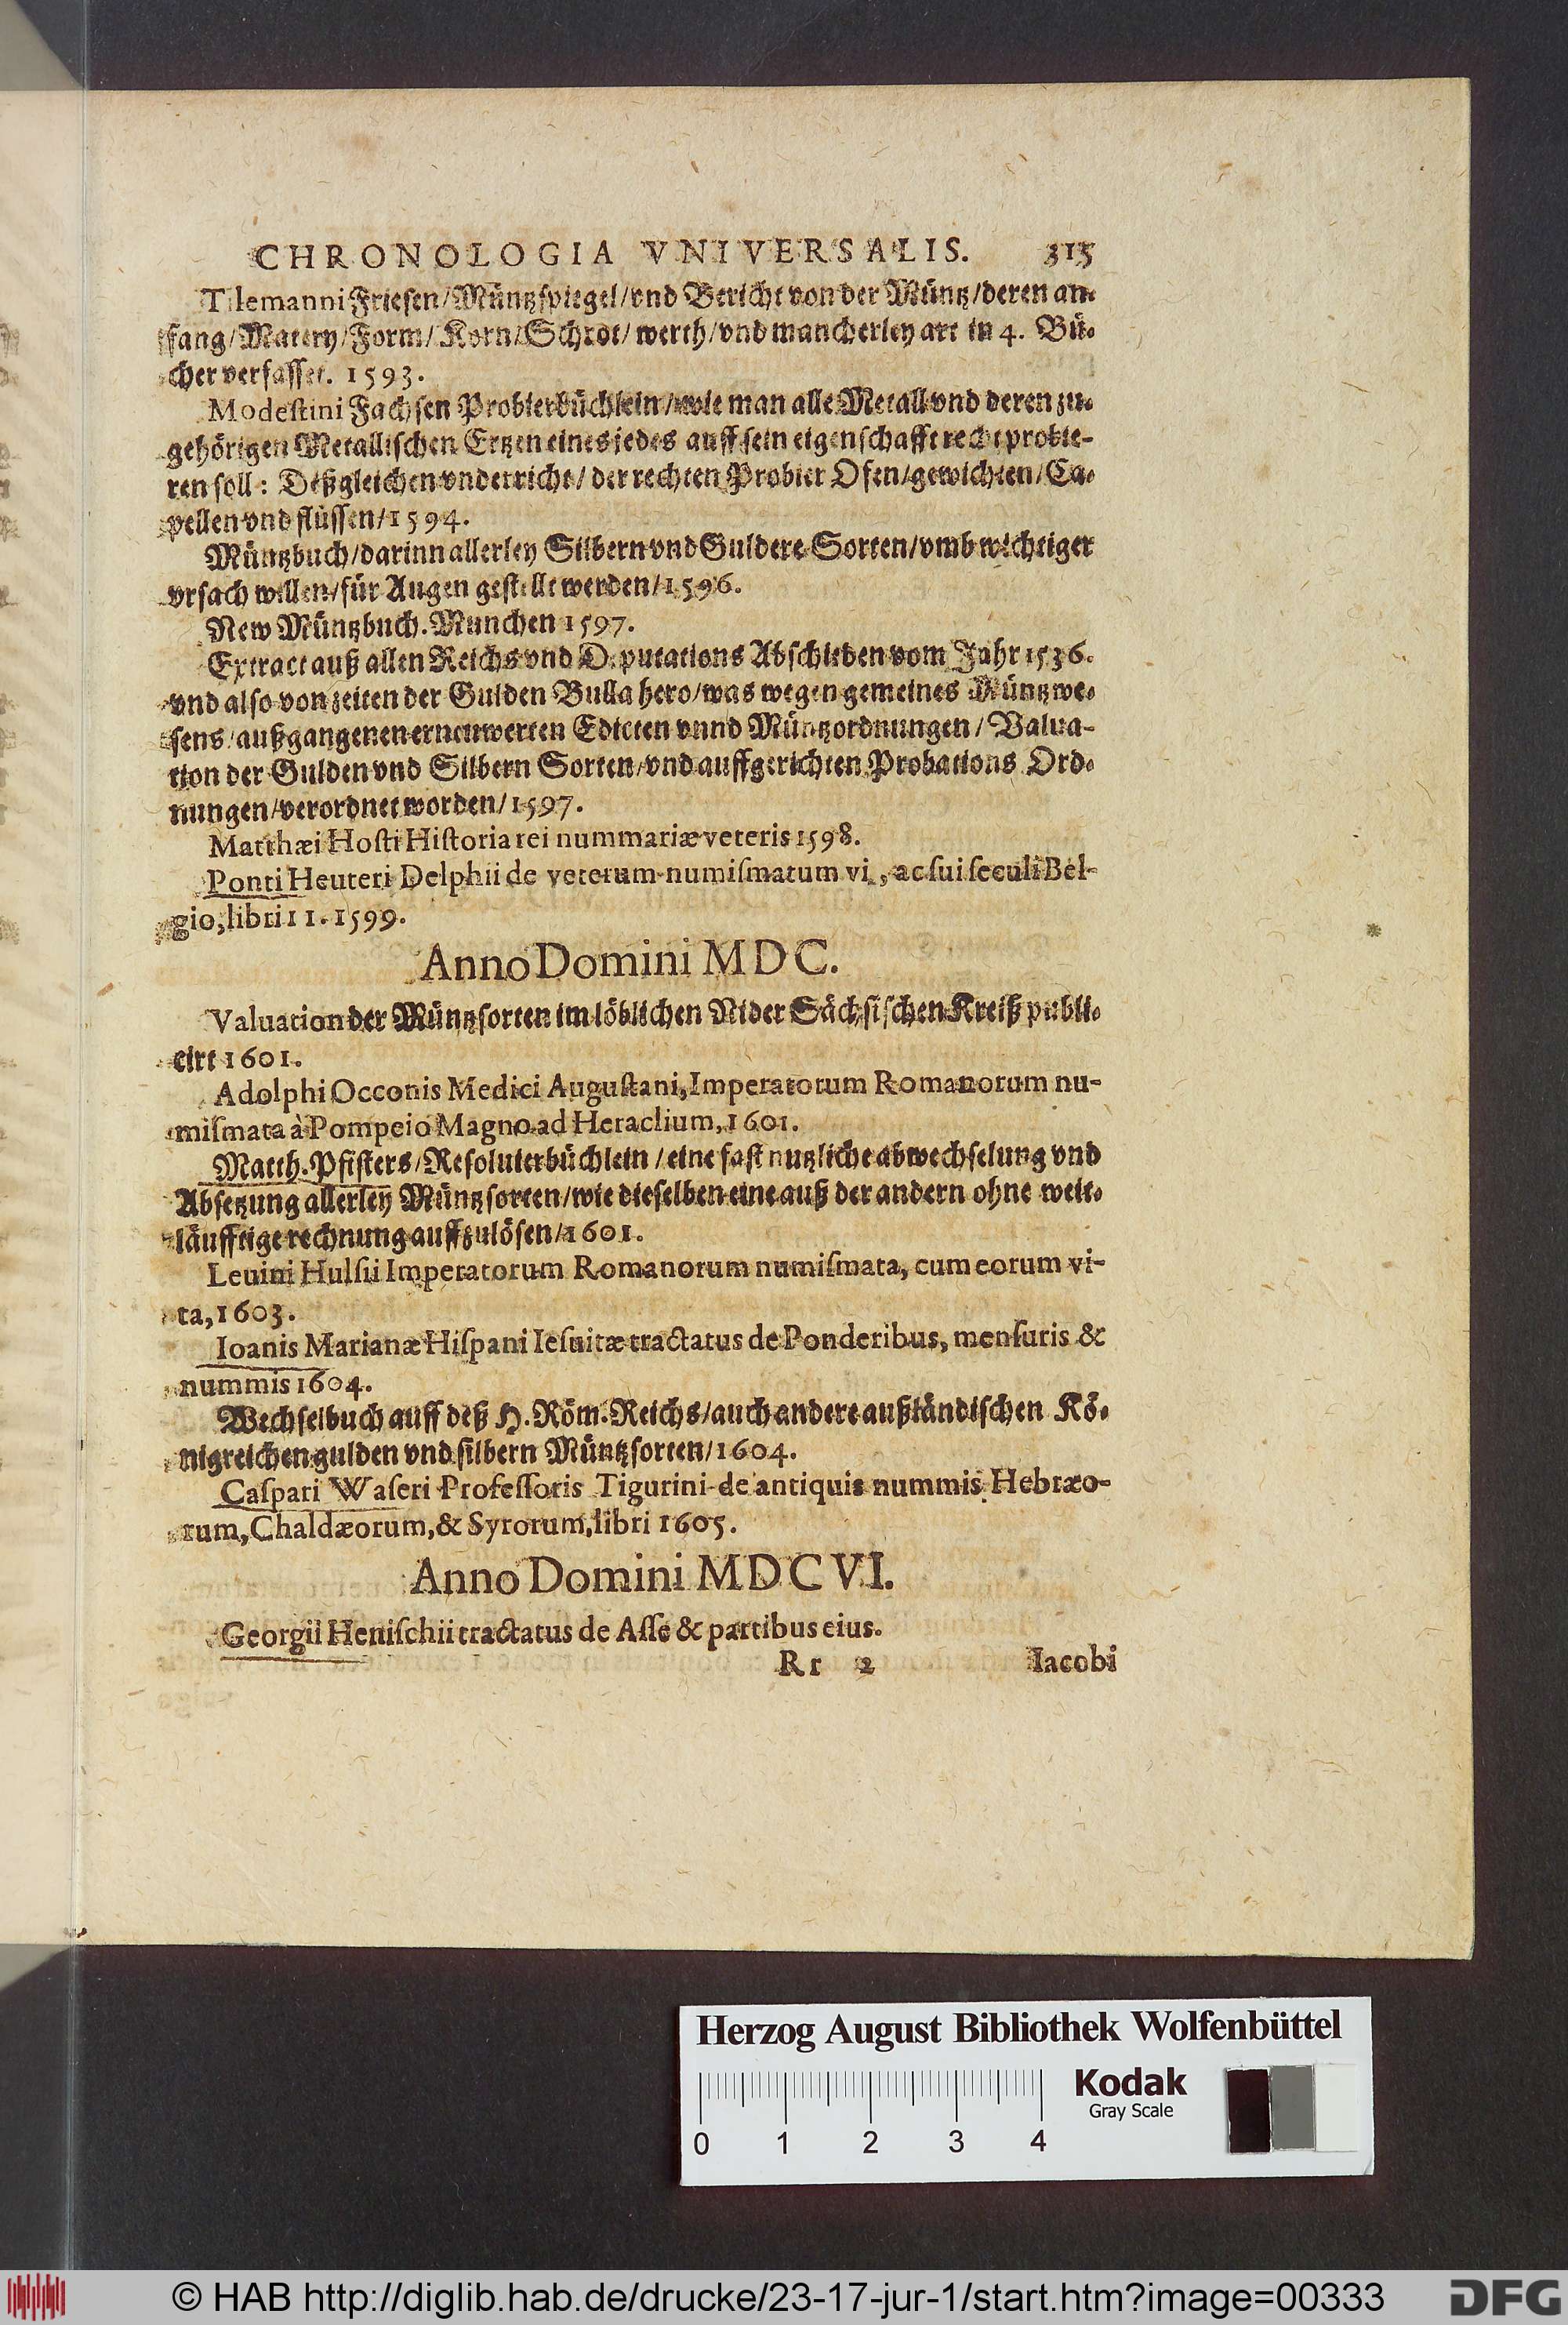 CHRONOLOGIA VNIVERSALIS. 315
Tilemanni Friesen/Müntzspiegel/vnd Bericht von der Müntz/deren an-
fang/Matery/Form/Korn/Schrot/werth/vnd mancherley art in 4. Bü-
cher verfasset. 1593.
Modeſtini Fachsen Probierbüchlein/wie man alle Metall vnd deren zu-
gehörigen Metallischen Ertzen eines jedes auff sein eigenschafft recht probie-
ren soll: Deßgleichen vnderricht/der rechten Probier Ofen/gewichten/Ca-
pellen vnd flüssen/1594.
Müntzbuch/darinn allerley Silbern vnd Guldere Sorten/vmb wichtiger
vrsach willen/für Augen gestellt werden/1596.
New Müntzbuch. Munchen 1597.
Extract auß allen Reichs vnd Deputations Abschieden vom Jahr 1536.
vnd also von zeiten der Gulden Bulla hero/was wegen gemeines Müntzwe-
sens/außgangenen erneuwerten Edicten vnnd Müntzordnungen/Valua-
tion der Gulden vnd Silbern Sorten/vnd auffgerichten Probations Ord-
nungen/verordnet worden/1597.
Matthæi Hoſti Hiſtoria rei nummariæ veteris 1598.
Ponti Heuteri Delphii de veterum numiſmatum vi, ac ſui ſeculi Bel-
gio, libri 11. 1599.
Anno Domini MDC.
Valuation der Müntzsorten im löblichen Nider Sächsischen Kreiß publi-
cirt 1601.
Adolphi Occonis Medici Auguſtani, Imperatorum Romanorum nu-
miſmata à Pompeio Magno ad Heraclium, 1601.
Matth. Pfisters/Resoluierbüchlein/eine fast nutzliche abwechselung vnd
Absetzung allerley Müntzsorten/wie dieselben eine auß der andern ohne weit-
läufftige rechnung auffzulösen/1601.
Leuini Hulſii Imperatorum Romanorum numiſmata, cum eorum vi-
ta, 1603.
Ioanis Marianæ Hiſpani Ieſuitæ tractatus de Ponderibus, menſuris &
nummis 1604.
Wechselbuch auff deß H. Röm. Reichs/auch andere außländischen Kö-
nigreichen gulden vnd silbern Müntzsorten/1604.
Caſpari Waſeri Profeſſoris Tigurini de antiquis nummis Hebræo-
rum, Chaldæorum, & Syrorum, libri 1605.
Anno Domini MDCVI.
Georgii Heniſchii tractatus de Aſſe & partibus eius.
Rr 2 Iacobi
Herzog August Bibliothek Wolfenbüttel
Kodak
Gray Scale
0 1 2 3 4
© HAB http://diglib.hab.de/drucke/23-17-jur-1/start.htm?image=00333
DFG